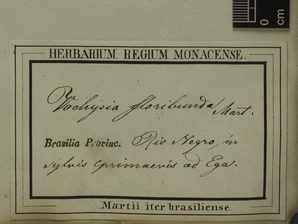 0
cm
HERBARIUM REGIUM MONACENSE.
Vochysia floribunda Mart.
Brasilia Provinc. Rio Negro, in
sylvis primaevis ad Ega.
Martii iter brasiliense.